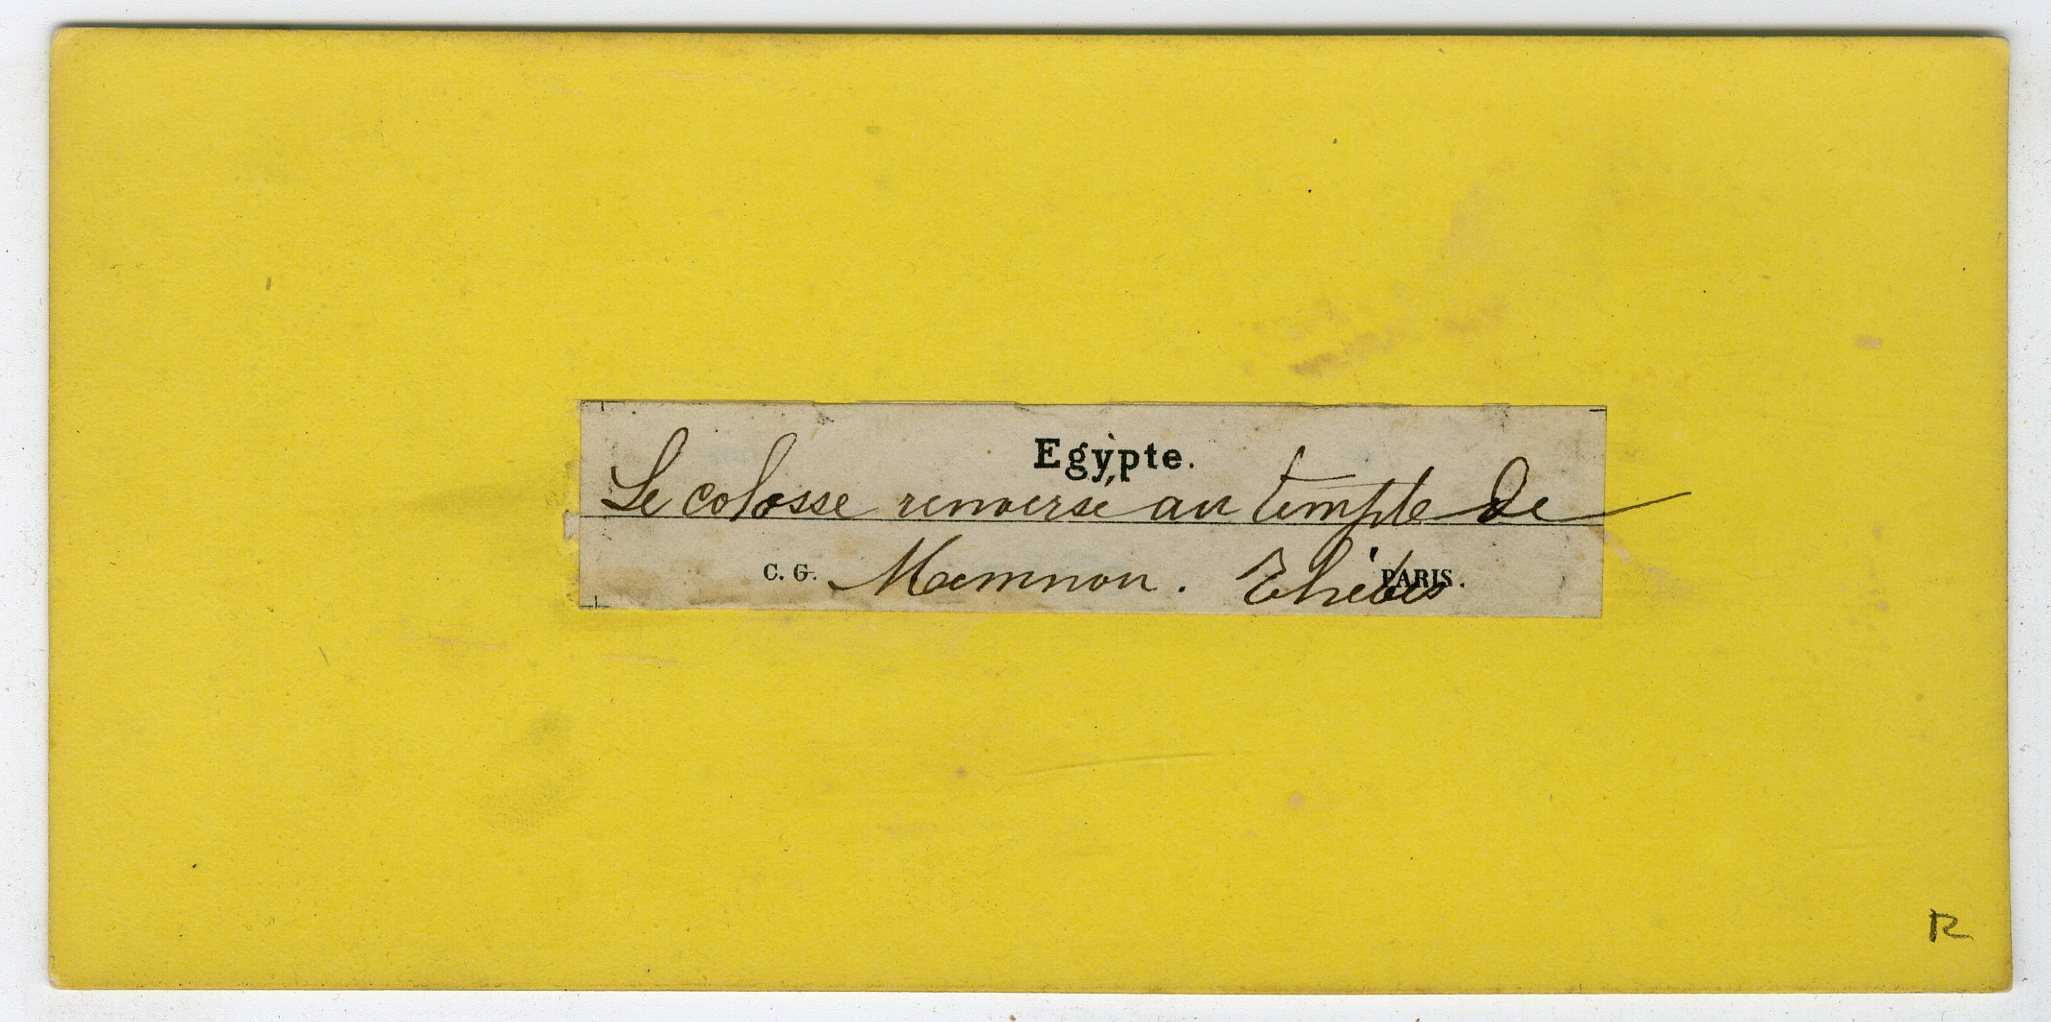 Egypte.
Le colosse renversé au temple de
C. G. Memnon. Thèbes PARIS.
R